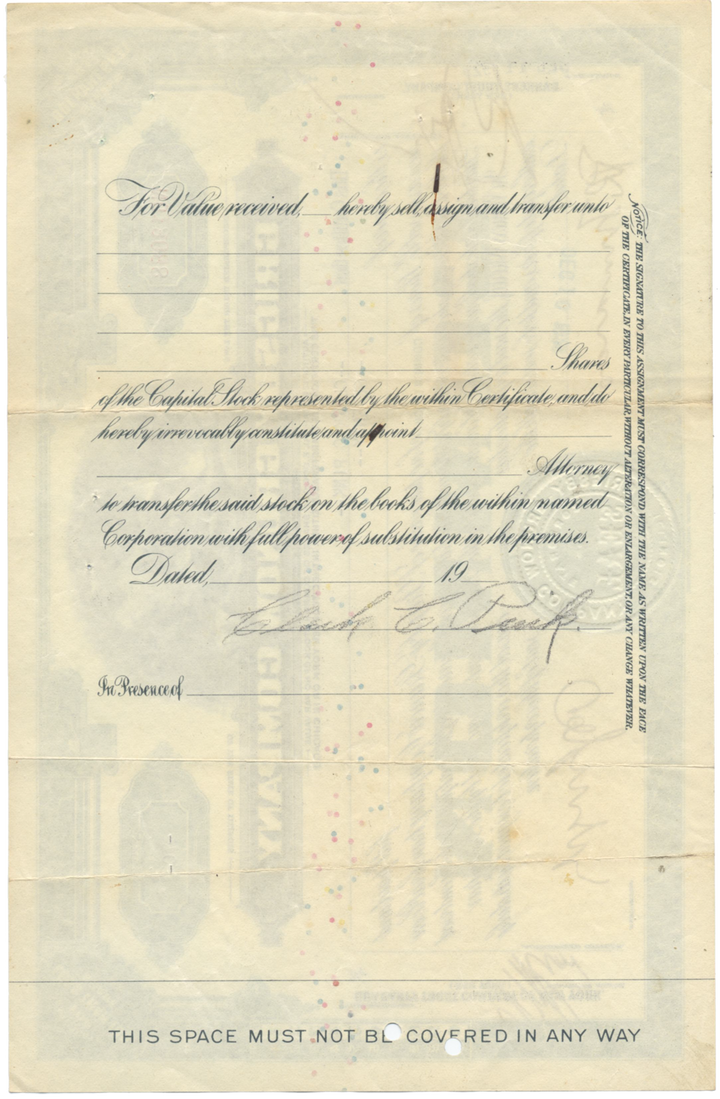 For Value received, ___ hereby sell, assign and transfer unto
Shares
of the Capital Stock represented by the within Certificate, and do
hereby irrevocably constitute and appoint
Attorney
to transfer the said stock on the books of the within named
Corporation with full power of substitution in the premises.
Dated, 19
Clark C.
In Presence of
NOTICE: THE SIGNATURE TO THIS ASSIGNMENT MUST CORRESPOND WITH THE NAME AS WRITTEN UPON THE FACE
OF THE CERTIFICATE, IN EVERY PARTICULAR, WITHOUT ALTERATION OR ENLARGEMENT, OR ANY CHANGE WHATEVER.
THIS SPACE MUST NOT BE COVERED IN ANY WAY